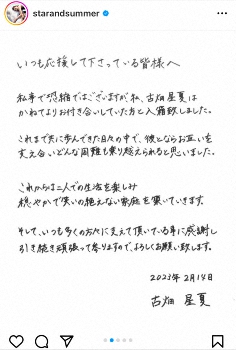 starandsummer
いつも応援して下さっている皆様へ
私事で恐縮ではございますが、私、古畑 星夏は
かねてよりお付き合いしていた方と入籍致しました。
これまで共に歩んできた日々の中で、彼とならお互いを
支え合いどんな困難も乗り越えられると思いました。
これからは二人での生活を楽しみ
穏やかで笑いの絶えない家庭を築いていきます。
そして、いつも多くの方々に支えて頂いている事に感謝し
引き続き頑張って参りますので、よろしくお願い致します。
2023年2月14日
古畑 星夏